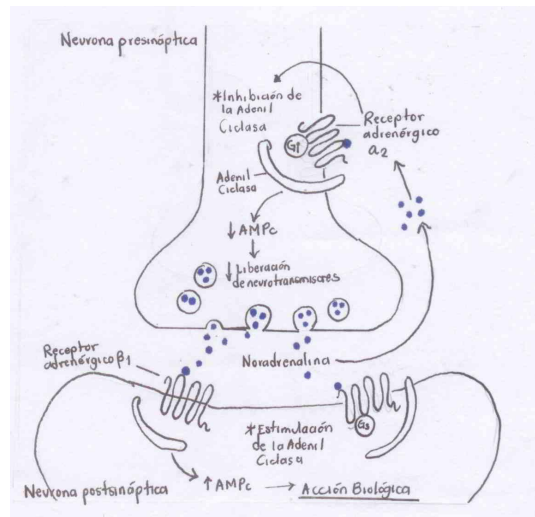 Neurona presináptica
*Inhibición de
la Adenil
Ciclasa
Receptor
adrenérgico
α2
Gi
Adenil
Ciclasa
↓AMPc
↓Liberación
de neurotransmisores
Receptor
adrenérgico β1
Noradrenalina
Gs
*Estimulación
de la Adenil
Ciclasa
Neurona postsináptica
↑AMPc → Acción Biológica